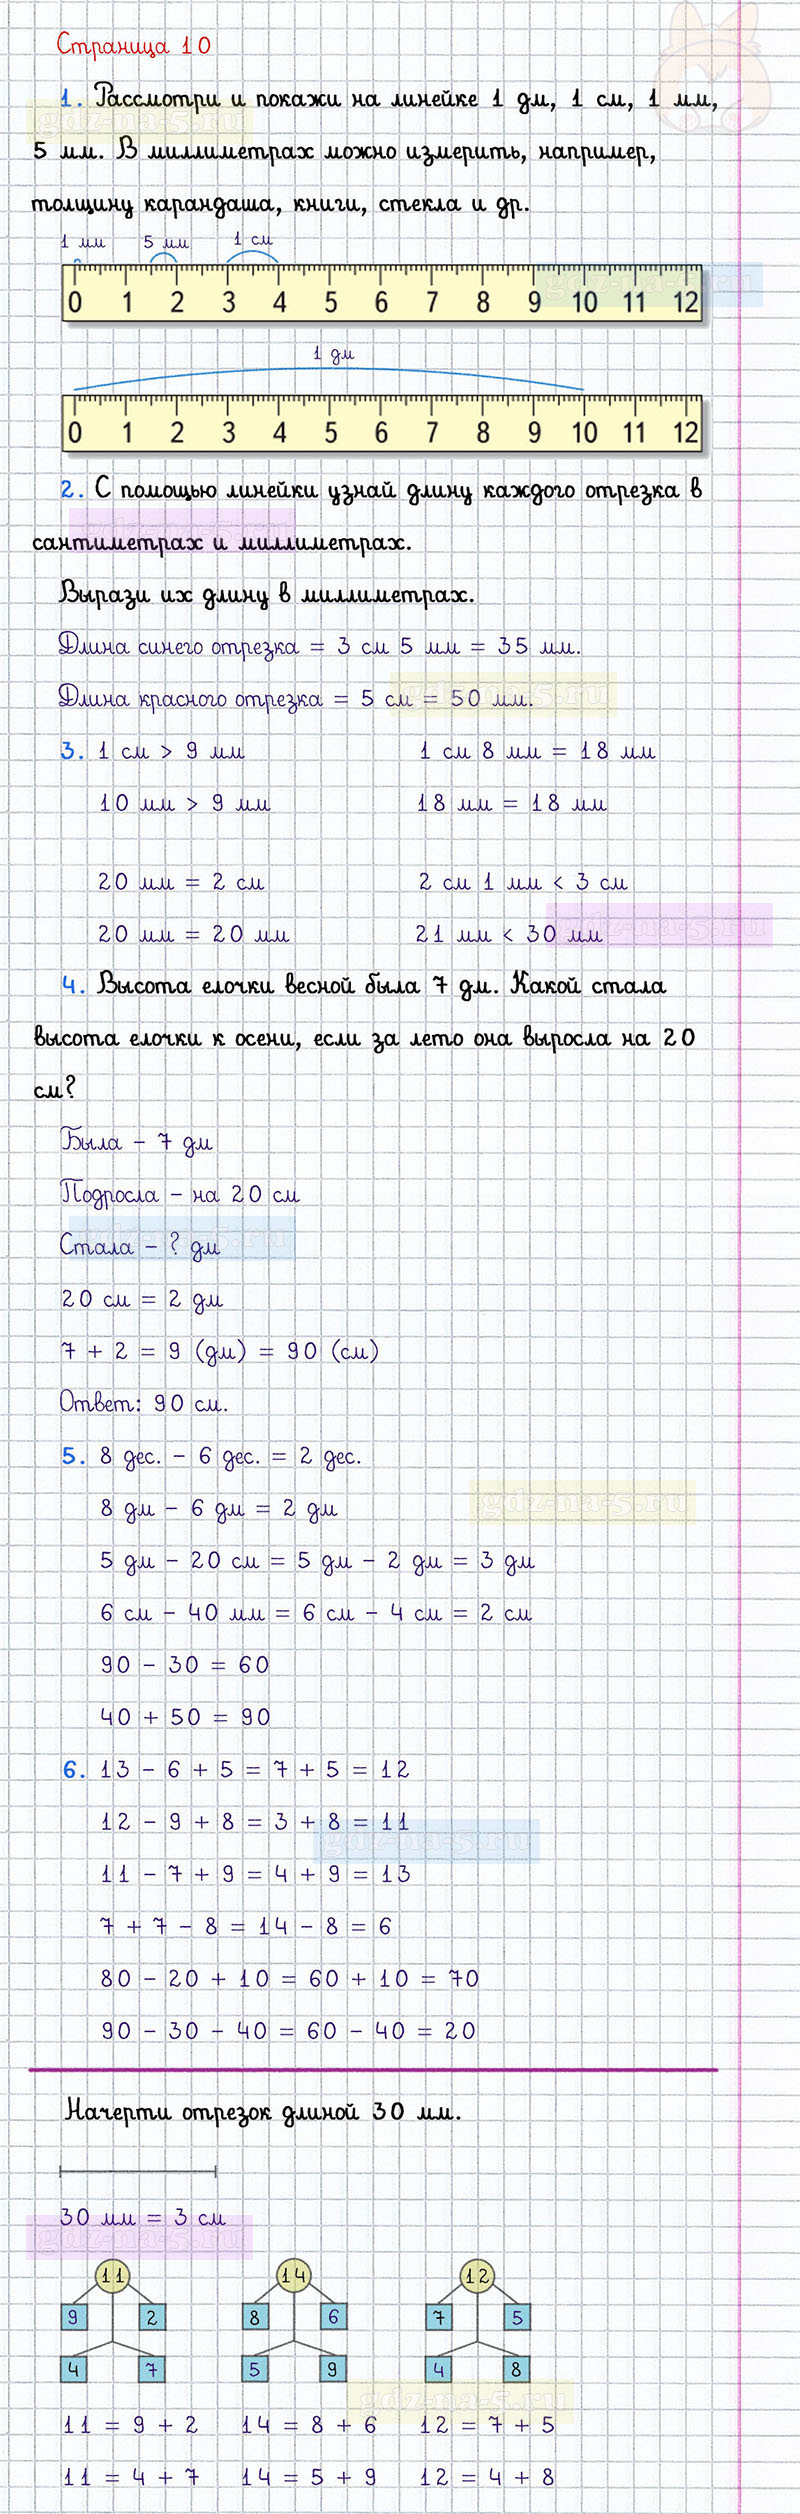 Страница 10
1. Рассмотри и покажи на линейке 1 дм, 1 см, 1 мм,
gdz-na-5.ru
5 мм. В миллиметрах можно измерить, например,
толщину карандаша, книги, стекла и др.
1 мм 5 мм 1 см
gdz-na-5.ru
0 1 2 3 4 5 6 7 8 9 10 11 12
1 дм
0 1 2 3 4 5 6 7 8 9 10 11 12
2. С помощью линейки узнай длину каждого отрезка в
gdz-na-5.ru
сантиметрах и миллиметрах.
Вырази их длину в миллиметрах.
Длина синего отрезка = 3 см 5 мм = 35 мм.
Длина красного отрезка = 5 см = 50 мм.
gdz-na-5.ru
3. 1 см > 9 мм 1 см 8 мм = 18 мм
10 мм > 9 мм 18 мм = 18 мм
20 мм = 2 см 2 см 1 мм < 3 см
20 мм = 20 мм 21 мм < 30 мм
gdz-na-5.ru
4. Высота елочки весной была 7 дм. Какой стала
высота елочки к осени, если за лето она выросла на 20
см?
Была – 7 дм
Подросла – на 20 см
Стала – ? дм
gdz-na-5.ru
20 см = 2 дм
7 + 2 = 9 (дм) = 90 (см)
Ответ: 90 см.
5. 8 дес. – 6 дес. = 2 дес.
8 дм – 6 дм = 2 дм
gdz-na-5.ru
5 дм – 20 см = 5 дм – 2 дм = 3 дм
6 см – 40 мм = 6 см – 4 см = 2 см
90 – 30 = 60
40 + 50 = 90
6. 13 – 6 + 5 = 7 + 5 = 12
12 – 9 + 8 = 3 + 8 = 11
gdz-na-5.ru
11 – 7 + 9 = 4 + 9 = 13
7 + 7 – 8 = 14 – 8 = 6
80 – 20 + 10 = 60 + 10 = 70
90 – 30 – 40 = 60 – 40 = 20
Начерти отрезок длиной 30 мм.
30 мм = 3 см
gdz-na-5.ru
11 14 12
9 2 8 6 7 5
4 7 5 9 4 8
gdz-na-5.ru
11 = 9 + 2 14 = 8 + 6 12 = 7 + 5
11 = 4 + 7 14 = 5 + 9 12 = 4 + 8